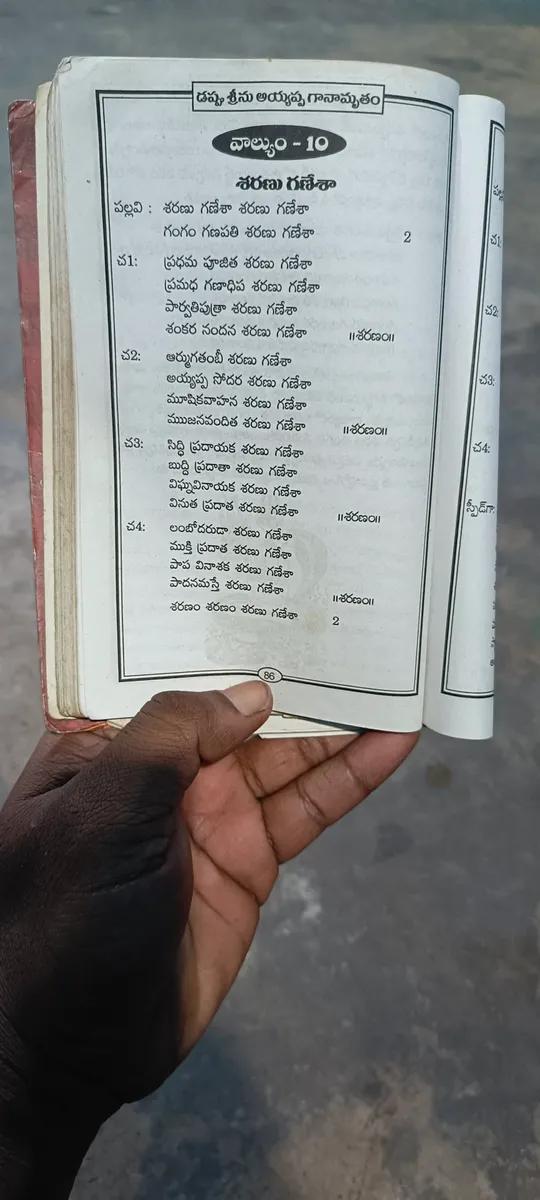 డప్పు శ్రీను అయ్యప్ప గానామృతం
వాల్యుం - 10
శరణు గణేశా
పల్లవి : శరణు గణేశా శరణు గణేశా
గంగం గణపతి శరణు గణేశా 2
చ1: ప్రధమ పూజిత శరణు గణేశా
ప్రమధ గణాధిప శరణు గణేశా
పార్వతిపుత్రా శరణు గణేశా
శంకర నందన శరణు గణేశా ॥శరణం॥
చ2: ఆర్ముగతంబీ శరణు గణేశా
అయ్యప్ప సోదర శరణు గణేశా
మూషికవాహన శరణు గణేశా
మునిజనవందిత శరణు గణేశా ॥శరణం॥
చ3: సిద్ధి ప్రదాయక శరణు గణేశా
బుద్ధి ప్రదాతా శరణు గణేశా
విఘ్నవినాయక శరణు గణేశా
వినుత ప్రదాత శరణు గణేశా ॥శరణం॥
చ4: లంబోదరుడా శరణు గణేశా
ముక్తి ప్రదాత శరణు గణేశా
పాప వినాశక శరణు గణేశా
పాదనమస్తే శరణు గణేశా ॥శరణం॥
శరణం శరణం శరణు గణేశా 2
86
చ1:
చ2:
చ3:
చ4:
స్పీడ్‌గా: